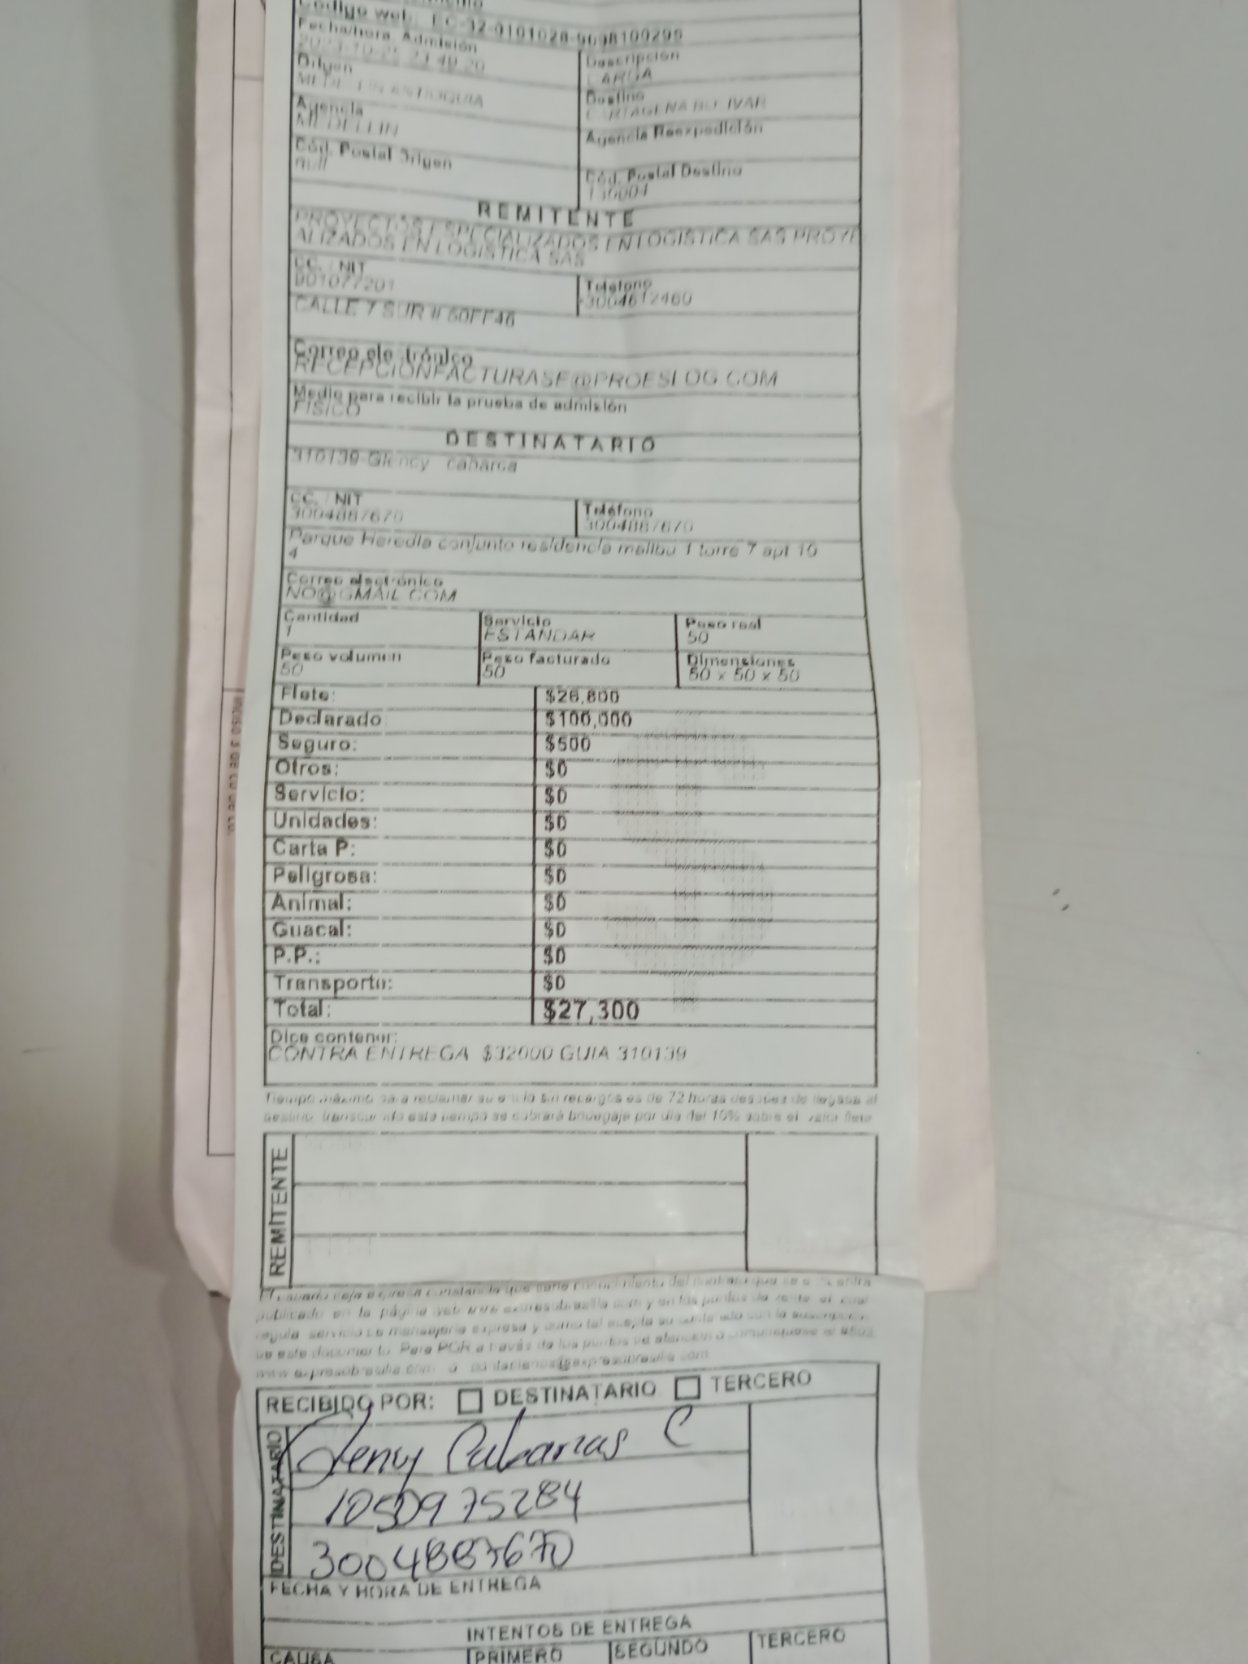 Código web: EC-32-0101028-9698100299
Fecha/hora. Admisión
Descripción
CARGA
Origen
MEDELLIN ANTIOQUIA
Destino
CARTAGENA BOLIVAR
Agencia
MEDELLIN
Agencia Reexpedición
Cód. Postal Origen
null
Cód. Postal Destino
130004
REMITENTE
PROYECTOS ESPECIALIZADOS EN LOGISTICA SAS PROYE
ALIZADOS EN LOGISTICA SAS
CC. / NIT
901077201
Teléfono
3004612460
CALLE 7 SUR # 50FF46
Correo electrónico
RECEPCIONFACTURASE@PROESLOG.COM
Medio para recibir la prueba de admisión
FISICO
DESTINATARIO
310139-Glency cabarca
CC. / NIT
3004887670
Teléfono
3004887670
Parque Heredia conjunto residencia malibu 1 torre 7 apt 10
4
Correo electrónico
NO@GMAIL.COM
Cantidad
1
Servicio
ESTANDAR
Peso real
50
Peso volumen
50
Peso facturado
50
Dimensiones
50 x 50 x 50
Flete: $26,800
Declarado $100,000
Seguro: $500
Otros: $0
Servicio: $0
Unidades: $0
Carta P: $0
Peligrosa: $0
Animal: $0
Guacal: $0
P.P.: $0
Transporte: $0
Total: $27,300
Dice contener:
CONTRA ENTREGA $32000 GUIA 310139
Tiempo máximo para reclamar su envío sin recargos es de 72 horas después de llegada al
destino, transcurrido este tiempo se cobrará bodegaje por día del 10% sobre el valor flete
REMITENTE
El usuario deja expresa constancia que tiene conocimiento del contrato que se encuentra
publicado en la página web www.expresobrasilia.com y en los puntos de venta, el cual
regula servicio de mensajería expresa y como tal acepta su contenido con la suscripción
de este documento. Para PQR a través de los puntos de atención o comuníquese al
www.expresobrasilia.com o contactenos@expresobrasilia.com
RECIBIDO POR: DESTINATARIO TERCERO
DESTINATARIO
Glency Cabarcas C
1050975284
3004887670
FECHA Y HORA DE ENTREGA
INTENTOS DE ENTREGA
CAUSA PRIMERO SEGUNDO TERCERO